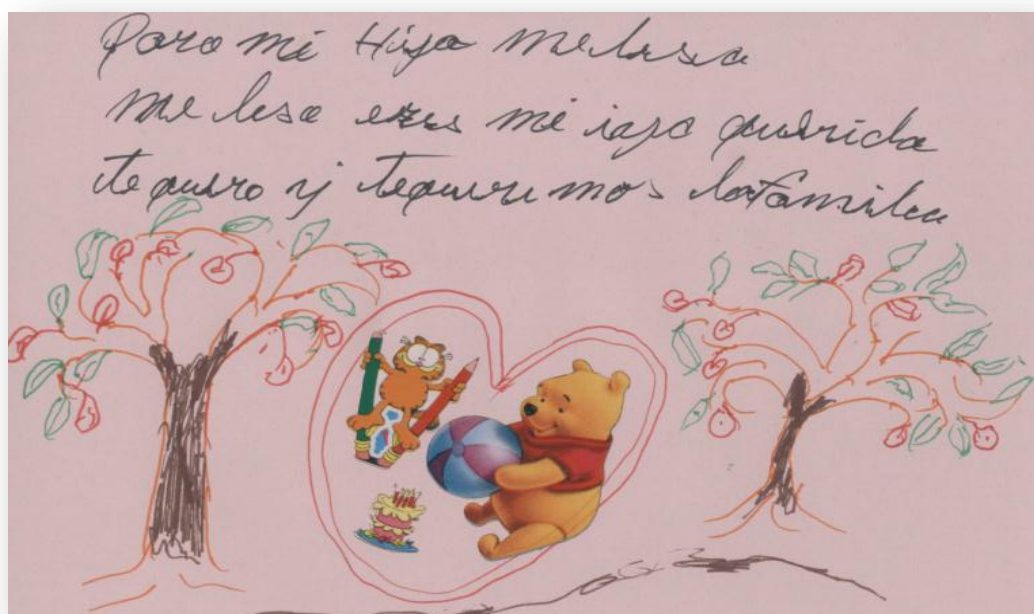 Para mi Hija melissa
me lesa eres mi iaja querida
te quiero y te queremos la familia